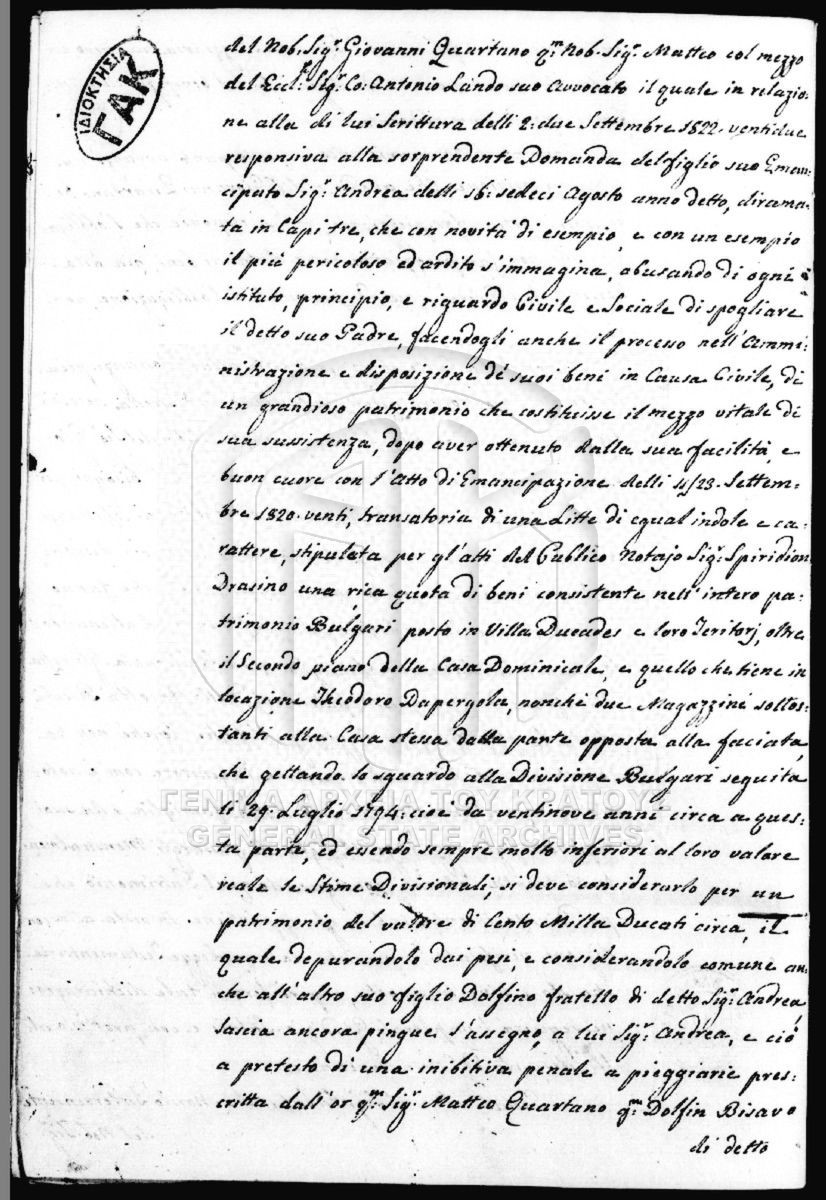 ΙΔΙΟΚΤΗΣΙΑ
ΓΑΚ
del Nob. Sigr. Giovanni Quartano qm. Nob. Sigr. Matteo col mezzo
del Eccl. Sigr. Co. Antonio Lando suo Avvocato il quale in relazio:
ne alla di lui Scrittura delli 2: due Settembre 1822. ventidue
responsiva alla sorprendente Domanda del figlio suo Eman:
cipato Sigr. Andrea delli 16: sedeci Agosto anno detto, dirama:
ta in Capi tre, che con novità di esempio, e con un esempio
il più pericoloso ed ardito s'immagina, abusando di ogni
istituto, principio, e riguardo Civile e Sociale di spogliare
il detto suo Padre, facendogli anche il processo nell'Ammi:
nistrazione e disposizione de' suoi beni in Causa Civile, di
un grandioso patrimonio che costituisse il mezzo vitale di
sua sussistenza, dopo aver ottenuto dalla sua facilità, e
buon cuore con l'Atto di Emancipazione delli 11/23. Settem:
bre 1820. venti, transatoria di una Litte di egual indole e ca:
rattere, stipulata per gl'atti del Publico Notajo Sigr. Spiridion
Drasino una rica quota di beni consistente nell'intero pa:
trimonio Bulgari posto in Villa Ducades e loro Teritorj, oltre
il Secondo piano della Casa Dominicale, e quello che tiene in
locazione Theodoro Dapergola, nonchè due Magazzini sottos:
tanti alla Casa stessa dalla parte opposta alla faciata,
che gettando lo sguardo alla Divisione Bulgari seguita
li 29. Luglio 1794: cioè da ventinove anni circa a ques:
ta parte, ed essendo sempre molto inferiori al loro valore
reale le Stime Divisionali, si deve considerarlo per un
patrimonio del valore di Cento Milla Ducati circa, il
quale depurandolo dai pesi, e considerandolo comune an:
che all'altro suo figlio Dolfino fratello di detto Sigr. Andrea,
lascia ancora pingue l'assegno, a lui Sigr. Andrea, e ciò
a pretesto di una inibitiva penale a pieggiarie pres:
critta dall'or qm. Sigr. Matteo Quartano qm. Dolfin Bisavo
di detto
ΓΕΝΙΚΑ ΑΡΧΕΙΑ ΤΟΥ ΚΡΑΤΟΥΣ
GENERAL STATE ARCHIVES